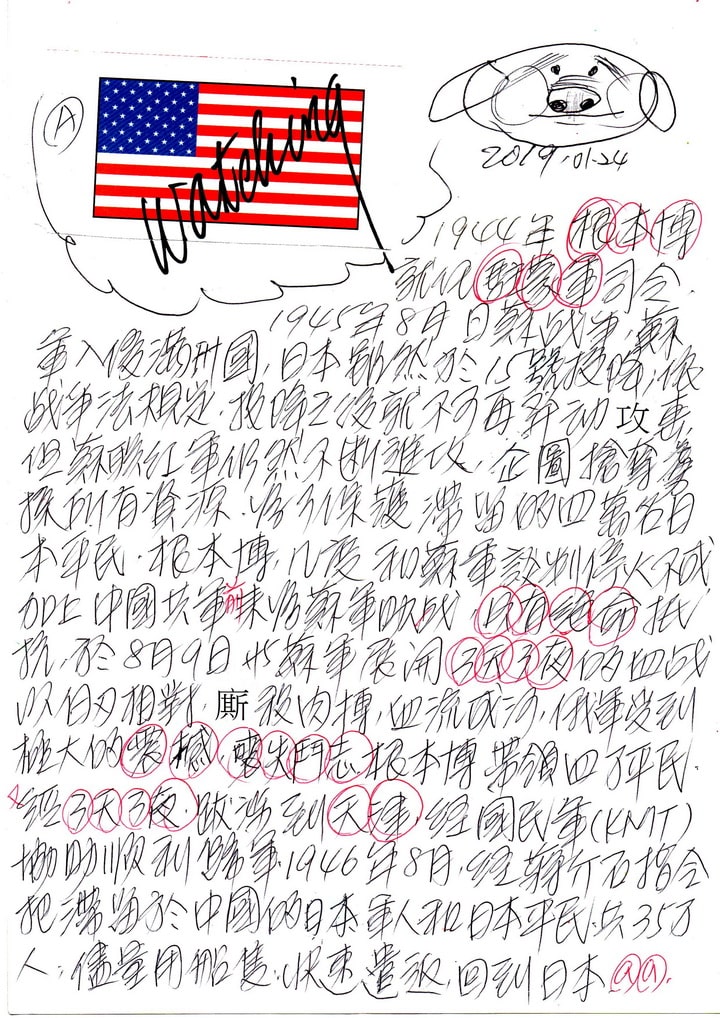 A
Watching
2019.01.24
1944年根本博
就任駐蒙軍司令.
1945年8月日蘇战争,蘇
軍入侵滿州國,日本雖然於15號投降,依
战争法規定,投降之後就不可再發动攻擊
但蘇联红軍仍然不断進攻,企圖搶奪
所有資源.為了保護滯留的四萬名日
本平民.根本博,几度和蘇軍談判停火不成
加上中國共軍前來為蘇軍助战 只有絕命抵
抗,於8月9日與蘇軍展開3天3夜的血战
以白刃相對,廝殺肉搏,血流成河,俄軍受到
極大的震撼,喪失鬥志.根本博帶領四万平民.
經3天3夜.跋涉到天津.經國民軍(KMT)
協助順利歸軍.1946年8月.經蔣介石指令
把滯留於中國的日本軍人和日本平民.共35万
人.儘量用船隻.快速遣返.回到日本